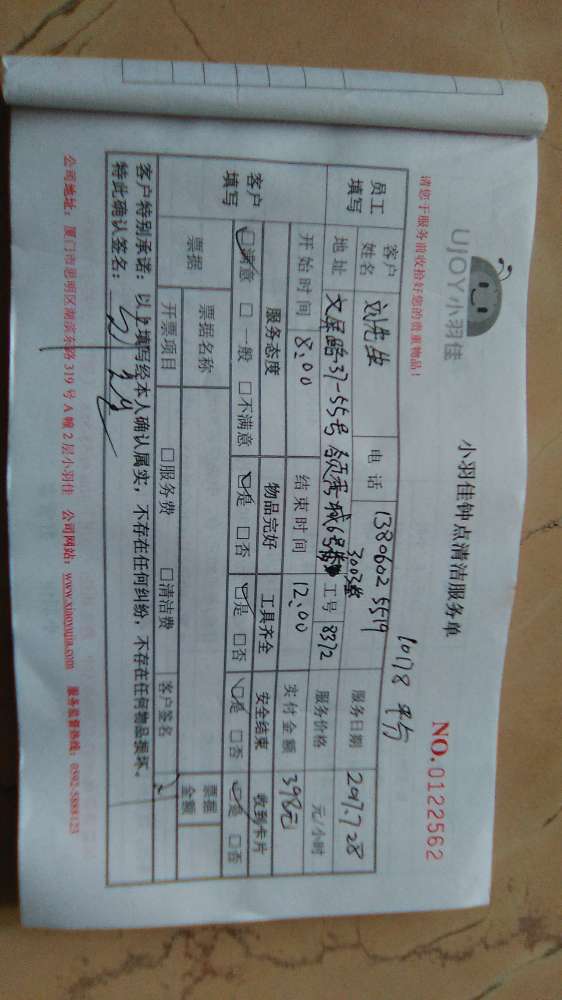 UJOY小羽佳
小羽佳钟点清洁服务单
请您于服务前收拾好您的贵重物品！
NO.0122562
10178
员工填写
客户姓名 刘先生 电话 13806025519 服务日期 2017.7.28
地址 文屏路37-55号 6号 3003 工号 8372 服务价格 元/小时
开始时间 8:00 结束时间 12:00 实付金额 398元
客户填写
服务态度 物品完好 工具齐全 安全结束 收到卡片
☑满意 □一般 □不满意 ☑是 □否 ☑是 □否 ☑是 □否 ☑是 □否
票据 票据名称 票据金额
开票项目 □服务费 □清洁费 客户签名
客户特别承诺：以上填写经本人确认属实，不存在任何纠纷，不存在任何物品损坏。
特此确认签名：
公司地址：厦门市思明区湖滨东路319号A幢2层小羽佳 公司网站：www.xiaoyujia.com 服务监督热线：0592-5888123